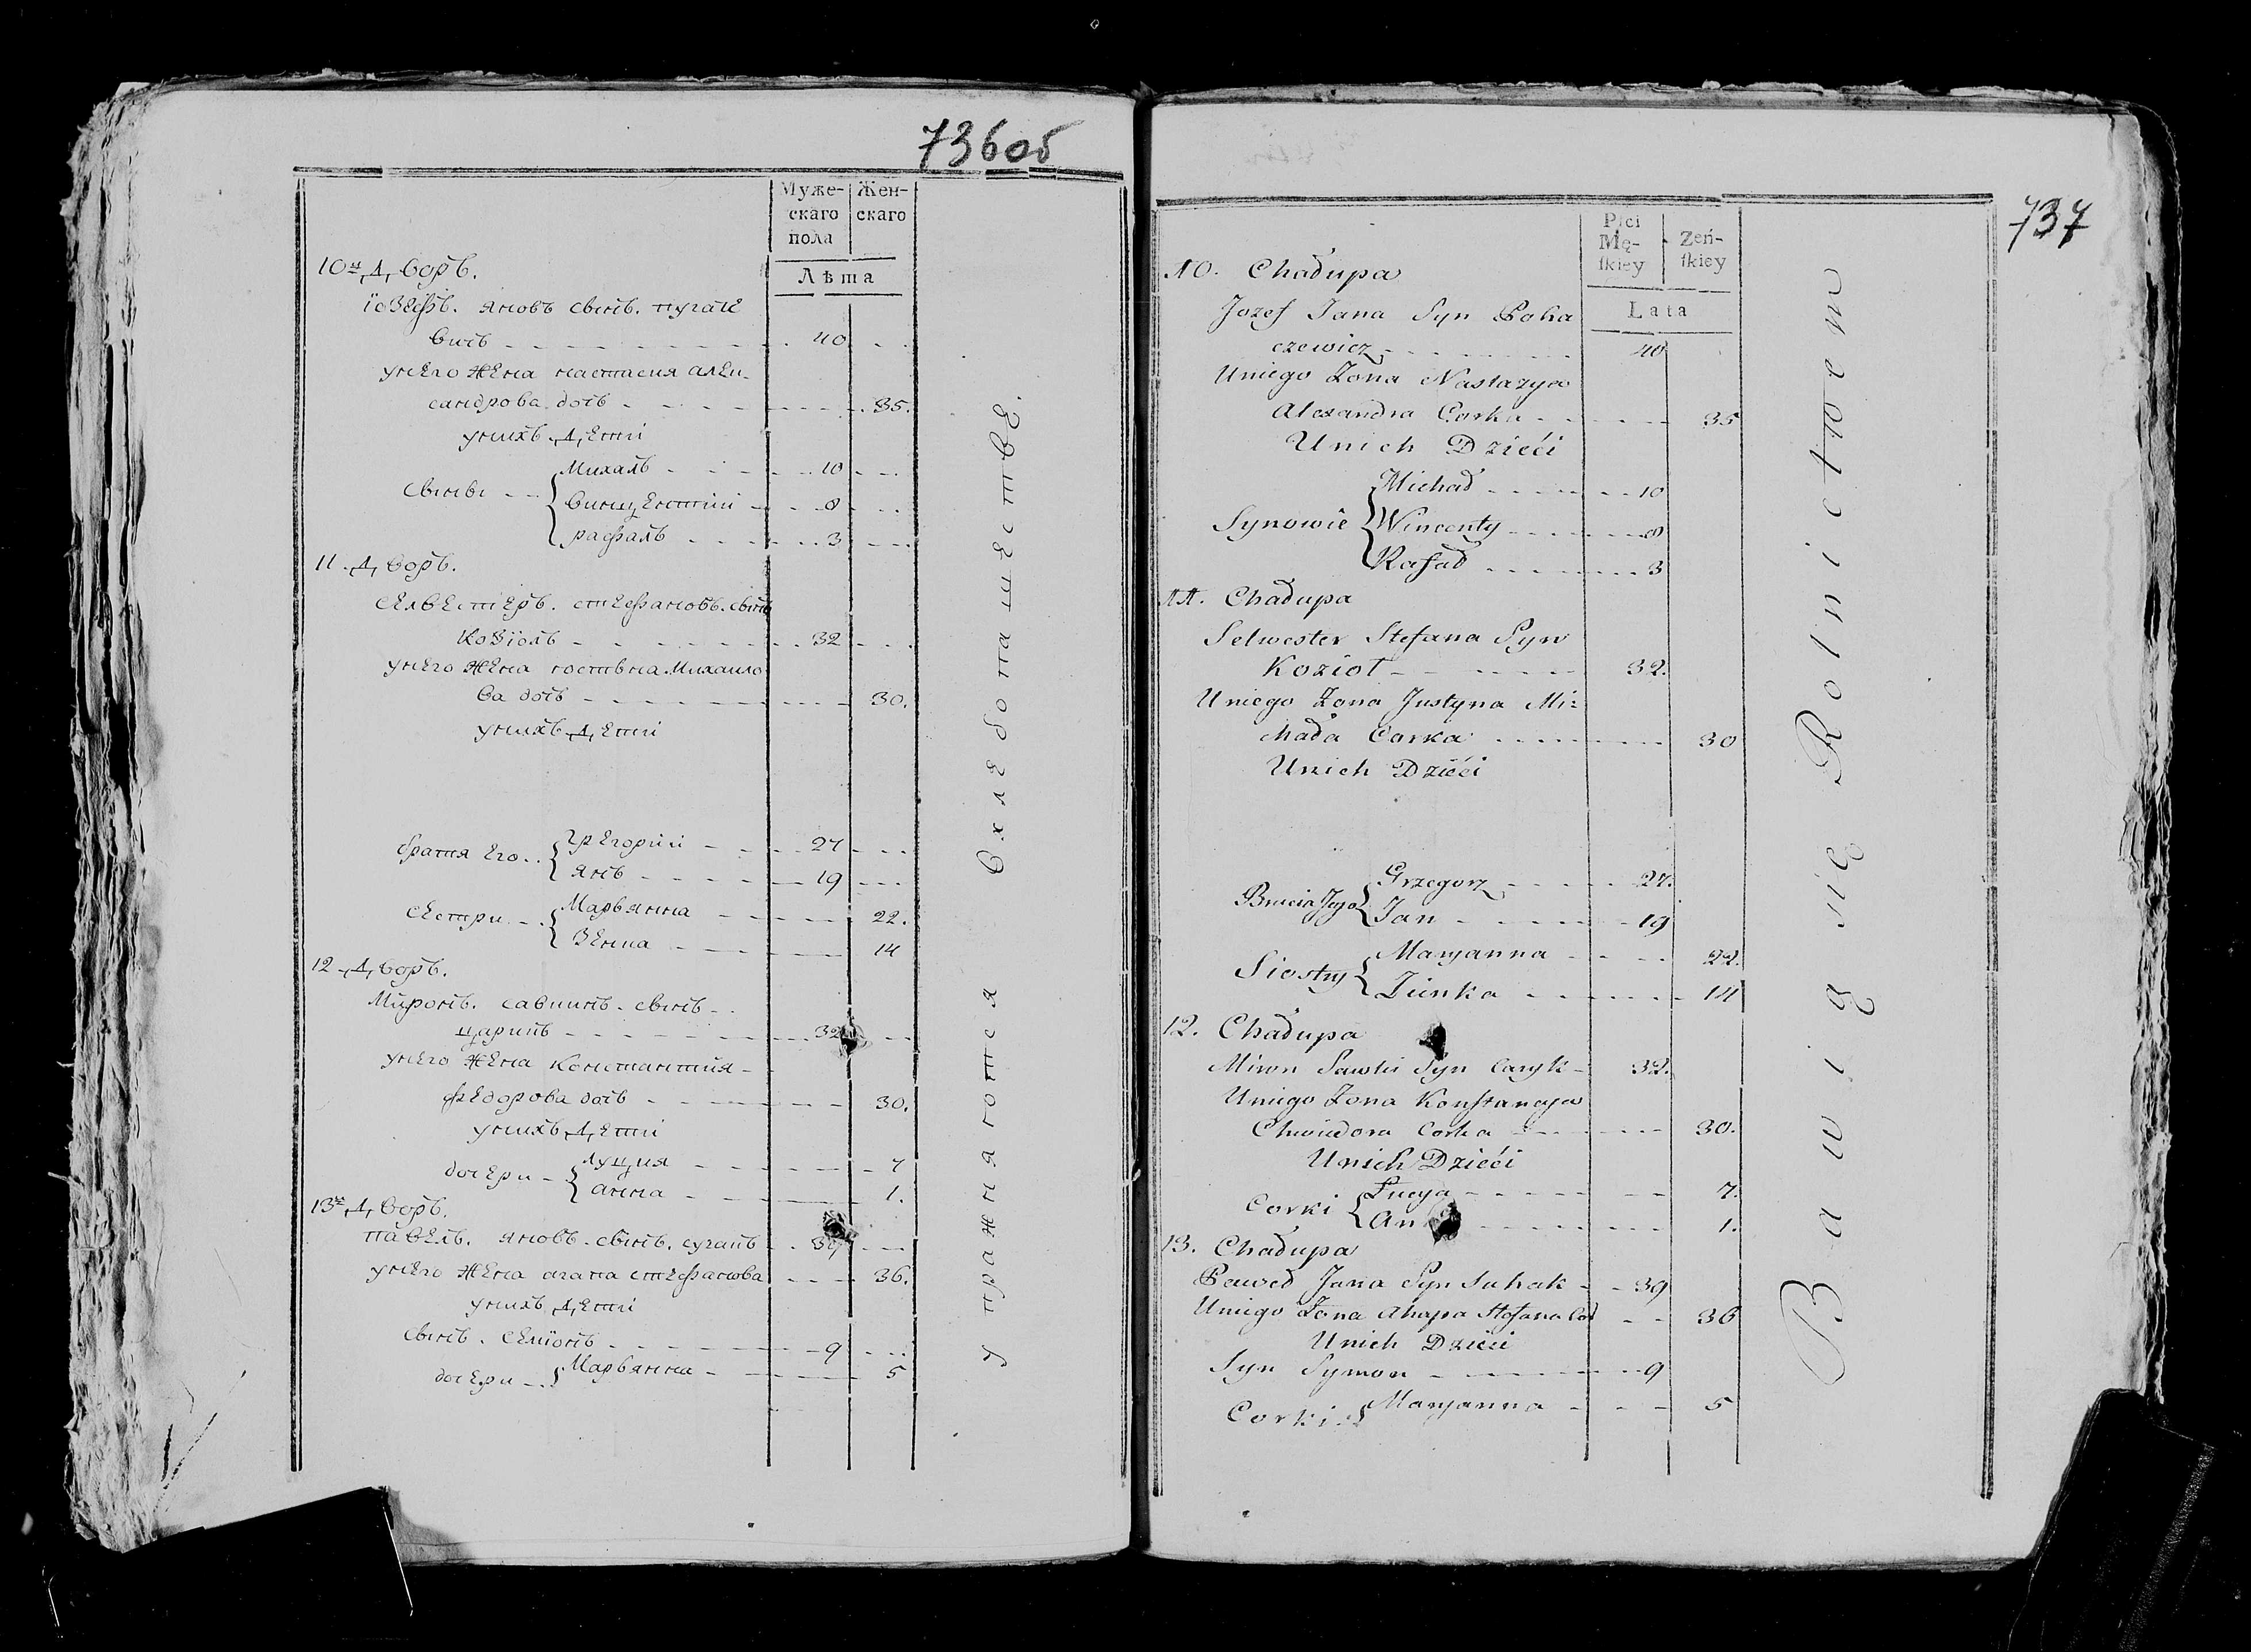 736об
Муже-
скаго
пола
Жен-
скаго
Лѣта
10й Дворъ.
іозефъ. яновъ сынъ. пугаче
вичъ 40
унего жена настасия алек-
сандрова дочъ 35.
унихъ Дети
сыны
Михалъ 10
винцентии 8
рафалъ 3
11. Дворъ.
селвестеръ. стефановъ. сынъ
козіолъ 32
унего жена Михаило
ва дочъ 30.
унихъ Дети
братия его
грегории 27
янъ 19
сестри
Марьянна 22.
Зенка 14
12. Дворъ.
Миронъ. савкинъ. сынъ
царикъ 32
унего жена константия
федорова дочъ 30.
унихъ Дети
дочери
луция 7
анна 1.
13й Дворъ.
павелъ. яновъ. сынъ. сугакъ 39
унего жена агапа стефанова 36.
унихъ Дети
сынъ. семіонъ 9
дочери
Марьянна 5
упражняготся вхлебопашестве.
737
Płci
Mę-
ſkiey
Zeń-
ſkiey
Lata
10. Chałupa
Jozef Jana Syn Poha
czewicz 40
Uniego Zona Nastazya
Alexandra Corka 35
Unich Dzieći
Synowie
Michał 10
Wincenty 8
Rafał 3
11. Chałupa
Selwester Stefana Syn
Kozioł 32.
Uniego Zona Justyna Mi-
chała Corka 30
Unich Dzieći
Bracia Jego
Grzegorz 27.
Jan 19
Siostry
Maryanna 22.
Zienka 14
12. Chałupa
Miron Sawki Syn Caryk 32.
Uniego Zona Konstancya
Chwiedora Corka 30.
Unich Dzieći
Corki
Łucya 7.
An 1.
13. Chałupa
Paweł Jana Syn Suhak 39
Uniego Zona Ahapa Stefana Cor 36
Unich Dzieći
Syn Symon 9
Corki
Maryanna 5
Bawią się Rolnictwem